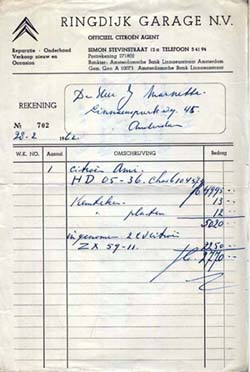 RINGDIJK GARAGE N.V.
OFFICIEEL CITROËN AGENT
Reparatie - Onderhoud
Verkoop nieuw en
Occasion
SIMON STEVINSTRAAT 12 a TELEFOON 5 61 94
Postrekening 571802
Bankier: Amsterdamsche Bank Linnaeusstraat Amsterdam
Gem. Giro A 10073 Amsterdamsche Bank Linnaeusstraat
REKENING
De Heer J Marnette
Linnaeusparkweg 45
Amsterdam
Nº 702
22-2 1962
W.K. NO. Aantal OMSCHRIJVING Bedrag
1 citroën Ami
HD 05-36. fl 4995
Kenteken 13
" platen 12
5020
ingenomen 2cv citroën
ZX 59-11. 2250
fl. 2770